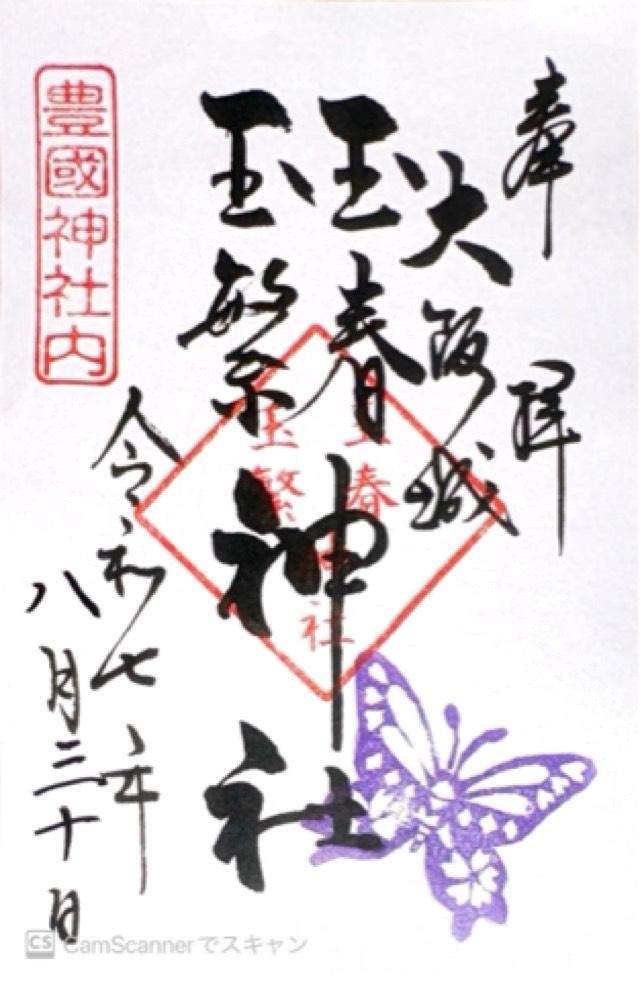 奉拝
大阪城
玉春
玉繁
神社
玉春
玉繁
神社
豊國神社内
令和七年
八月三十日
CS CamScannerでスキャン